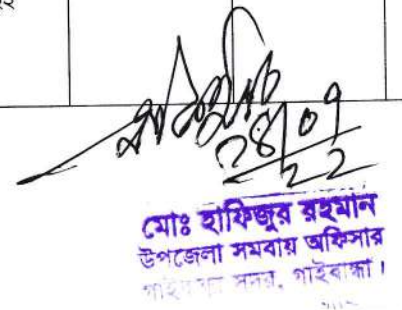 ২৪/০৭
২২
মোঃ হাফিজুর রহমান
উপজেলা সমবায় অফিসার
গাইবান্ধা সদর, গাইবান্ধা।